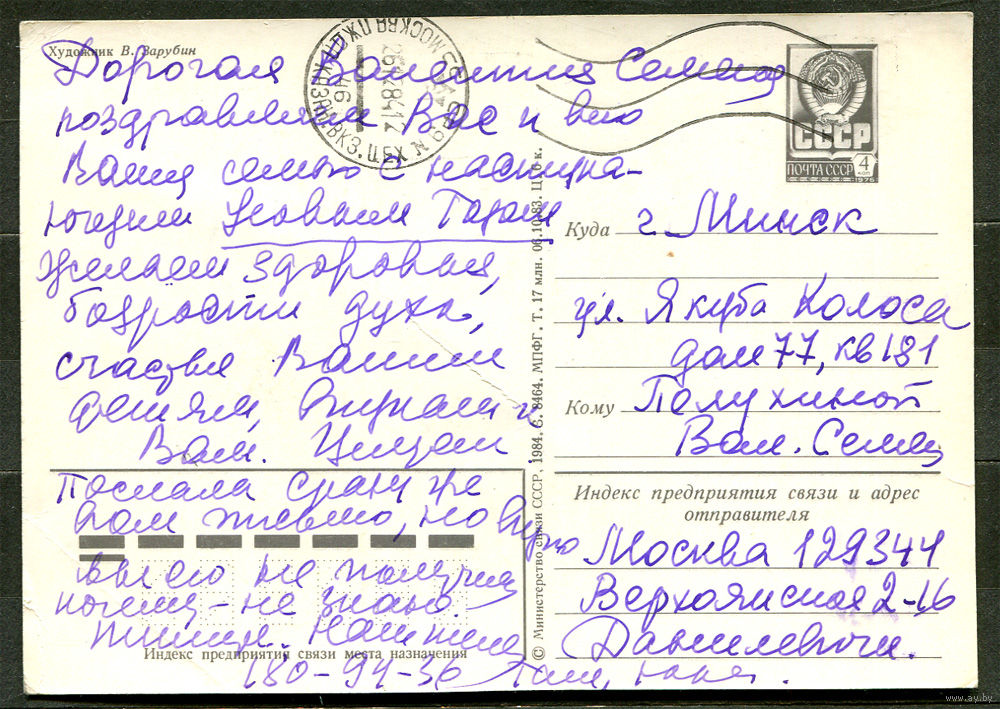 Художник В. Зарубин
Дорогая Валентина Семен
поздравляем Вас и всю
Вашу семью с наступа-
ющим Новым Годом
Желаем здоровья,
бодрости духа,
счастья Вашим
детям, внукам и
Вам. Целуем
Послала сразу же
Вам письмо, но видно
вы его не получили
почему - не знаю
пишите. Наш телеф
180-94-36
Индекс предприятия связи места назначения
© Министерство связи СССР, 1984. С. 8464. МПФГ. Т. 17 млн. 06.10.83. Ц. 5 к.
МОСКВА
26 84 12
СССР
ПОЧТА СССР
4 коп
1976
Куда г. Минск
ул. Якуба Коласа
дом 77, кв 131
Кому Полухиной
Вал. Семен
Индекс предприятия связи и адрес
отправителя
Москва 129344
Верхоянская 2-16
Данилевичи.
www.ay.by